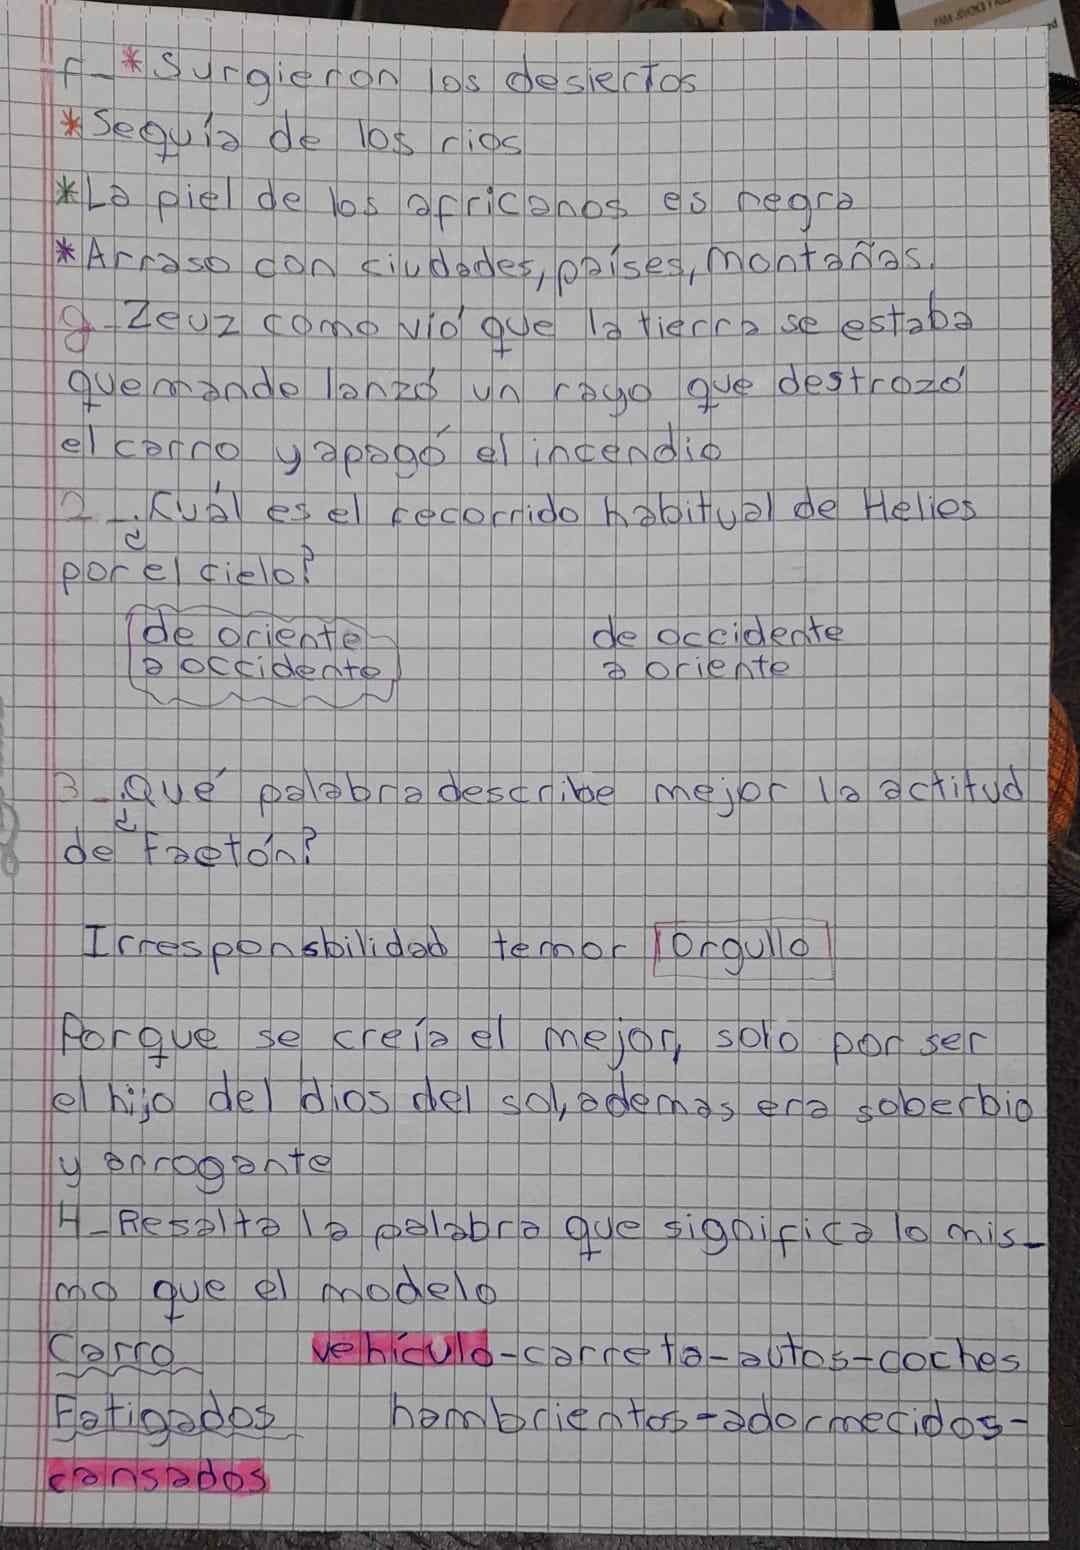 f- *Surgieron los desiertos
*Sequía de los rios
*La piel de los africanos es negra
*Arraso con ciudades, países, montañas.
g- Zeuz como vió que la tierra se estaba
quemando lanzó un rayo que destrozó
el carro y apagó el incendio
2-¿Cuál es el recorrido habitual de Helios
por el cielo?
de oriente de occidente
a occidente a oriente
3-¿Qué palabra describe mejor la actitud
de Faetón?
Irresponsbilidad temor orgullo
Porque se creía el mejor, solo por ser
el hijo del dios del sol, ademas era soberbio
y arrogante
4-Resalta la palabra que significa lo mis-
mo que el modelo
Carro vehículo-carreta-autos-coches
Fatigados hambrientos-adormecidos-
cansados